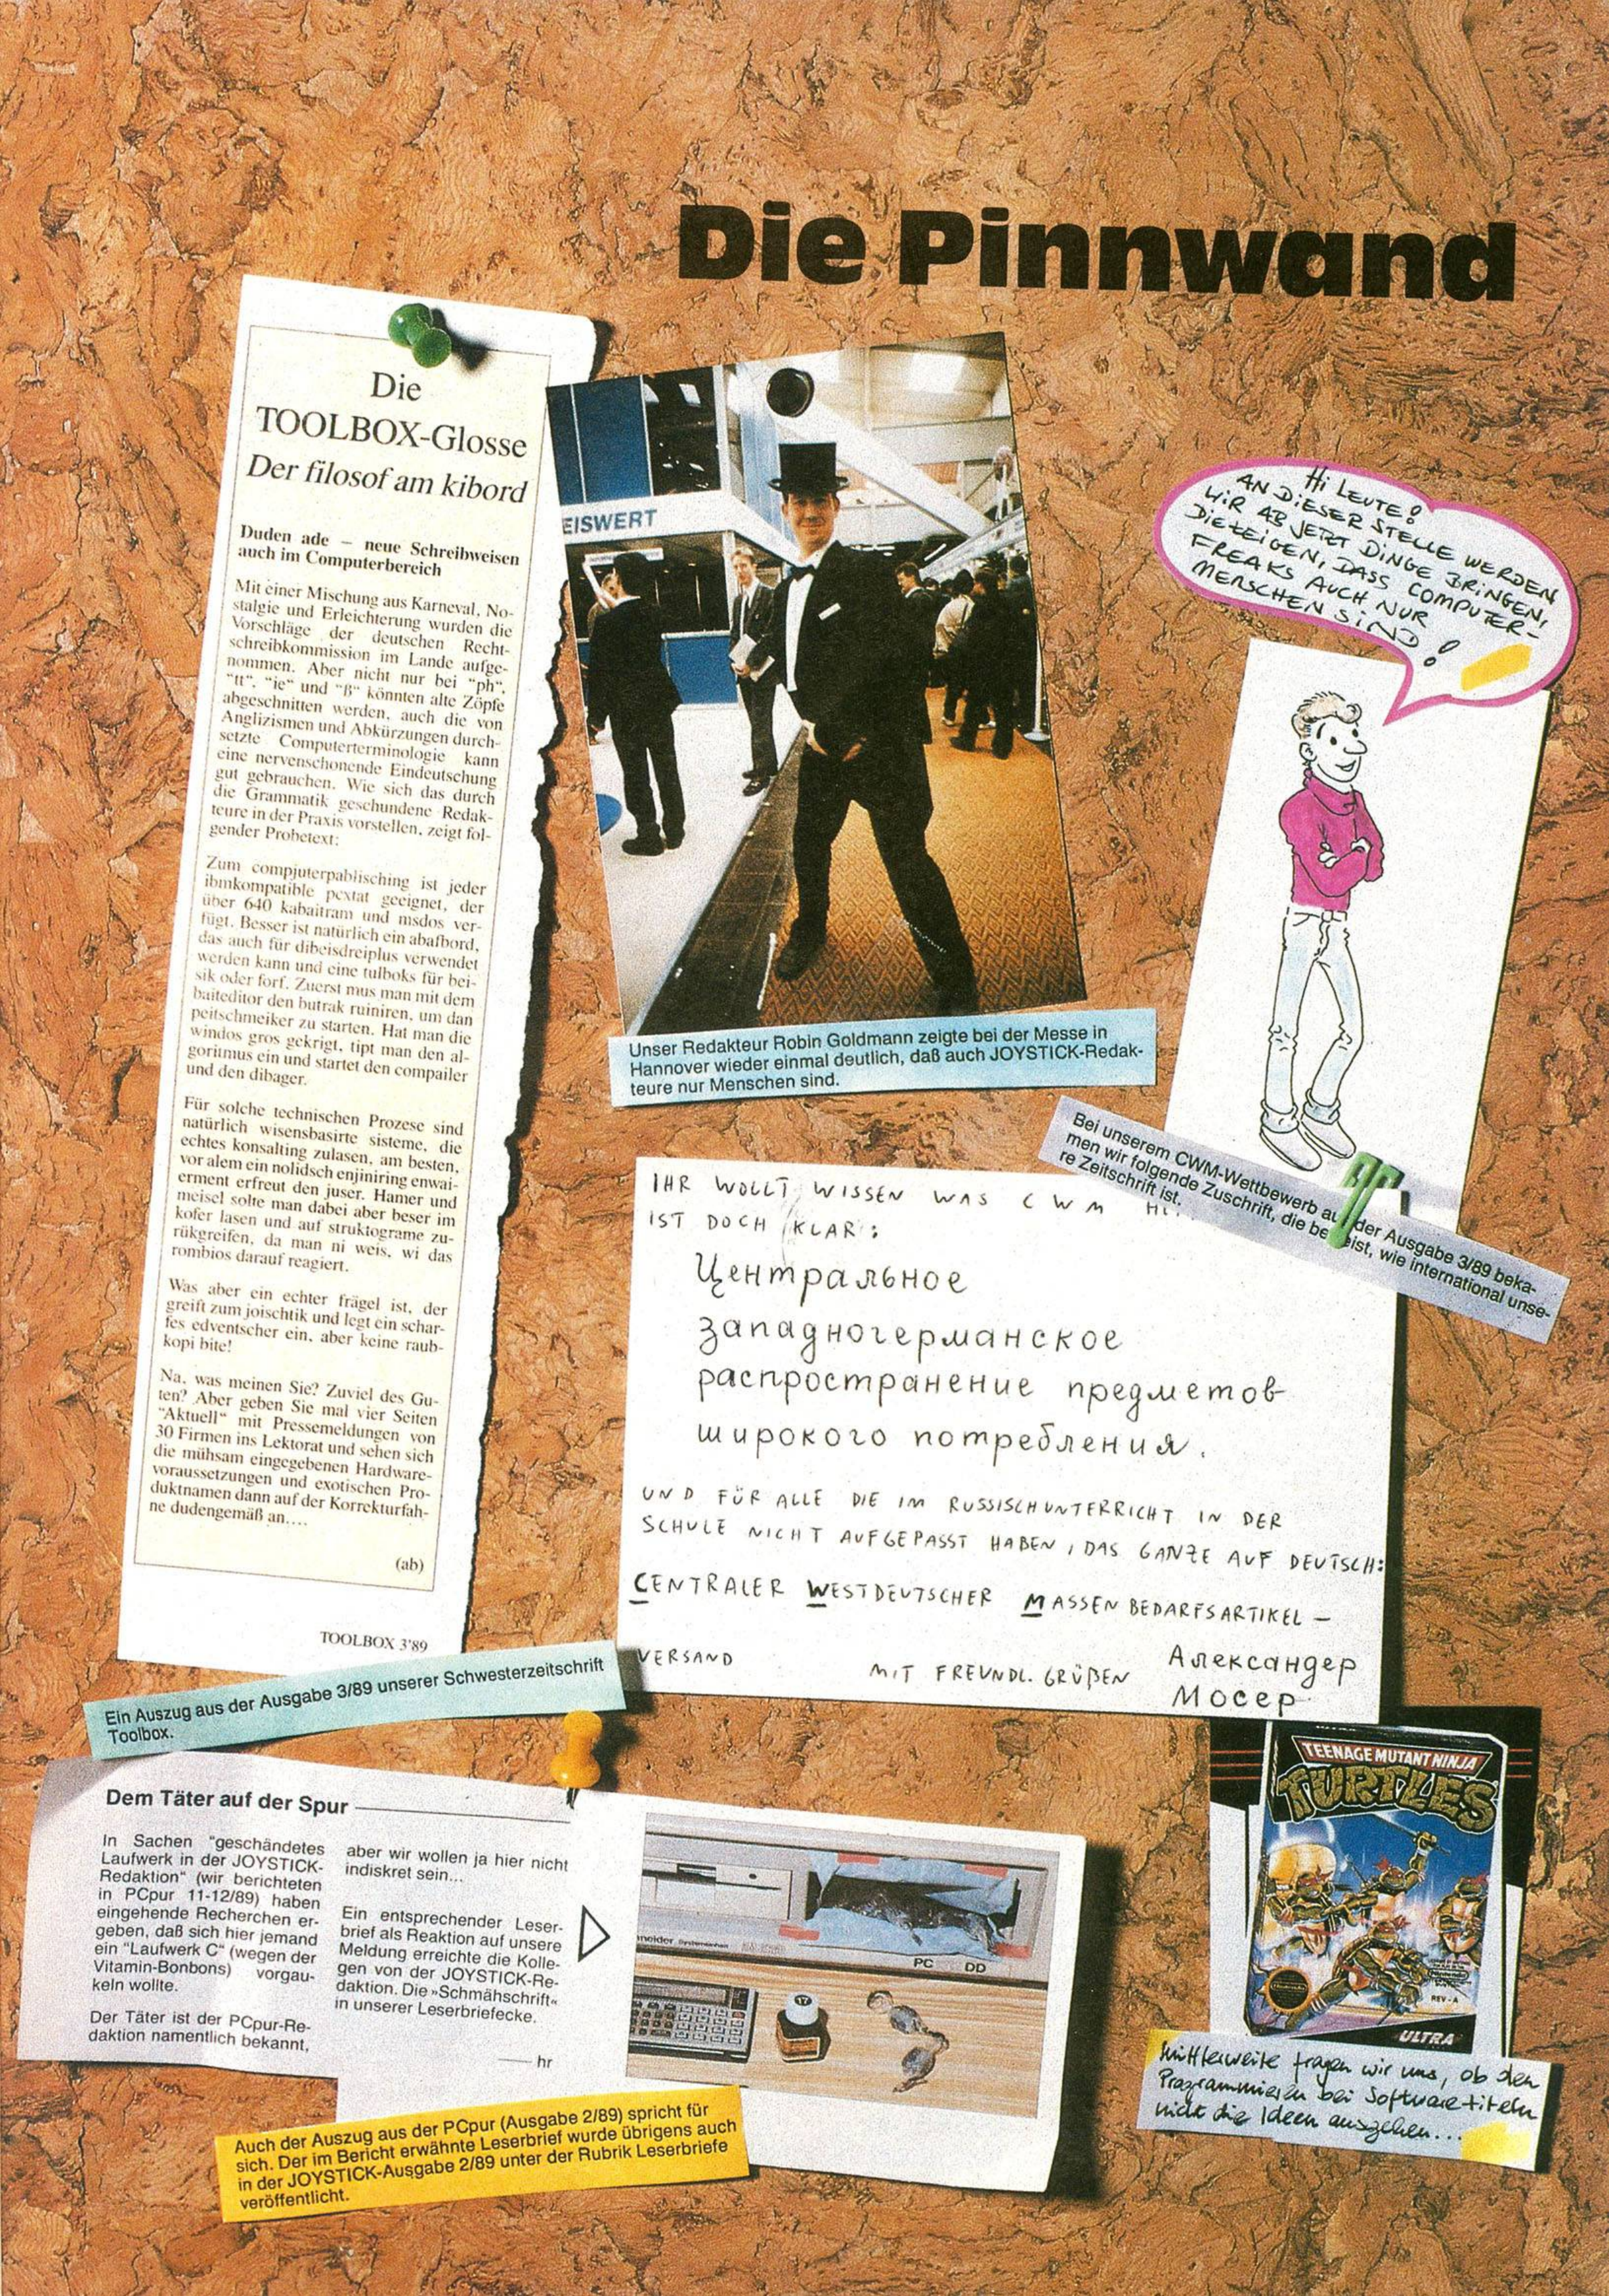 Die Pinnwand
Die
TOOLBOX-Glosse
Der filosof am kibord
Duden ade – neue Schreibweisen
auch im Computerbereich
Mit einer Mischung aus Karneval, No-
stalgie und Erleichterung wurden die
Vorschläge der deutschen Recht-
schreibkommission im Lande aufge-
nommen. Aber nicht nur bei "ph",
"tt", "ie" und "ß" könnten alte Zöpfe
abgeschnitten werden, auch die von
Anglizismen und Abkürzungen durch-
setzte Computerterminologie kann
eine nervenschonende Eindeutschung
gut gebrauchen. Wie sich das durch
die Grammatik geschundene Redak-
teure in der Praxis vorstellen, zeigt fol-
gender Probetext:
Zum compjuterpablisching ist jeder
ibmkompatible pextat geeignet, der
über 640 kabaitram und msdos ver-
fügt. Besser ist natürlich ein abafbord,
das auch für dibeisdreiplus verwendet
werden kann und eine tulboks für bei-
sik oder forf. Zuerst mus man mit dem
baiteditor den butrak ruiniren, um dan
peitschmeiker zu starten. Hat man die
windos gros gekrigt, tipt man den al-
goritmus ein und startet den compailer
und den dibager.
Für solche technischen Prozese sind
natürlich wisensbasirte sisteme, die
echtes konsalting zulasen, am besten,
vor alem ein nolidsch enjiniring enwai-
erment erfreut den juser. Hamer und
meisel solte man dabei aber beser im
kofer lasen und auf struktograme zu-
rükgreifen, da man ni weis, wi das
rombios darauf reagiert.
Was aber ein echter frägel ist, der
greift zum joischtik und legt ein schar-
fes edventscher ein, aber keine raub-
kopi bite!
Na, was meinen Sie? Zuviel des Gu-
ten? Aber geben Sie mal vier Seiten
"Aktuell" mit Pressemeldungen von
30 Firmen ins Lektorat und sehen sich
die mühsam eingegebenen Hardware-
voraussetzungen und exotischen Pro-
duktnamen dann auf der Korrekturfah-
ne dudengemäß an....
(ab)
TOOLBOX 3'89
Ein Auszug aus der Ausgabe 3/89 unserer Schwesterzeitschrift
Toolbox.
EISWERT
Unser Redakteur Robin Goldmann zeigte bei der Messe in
Hannover wieder einmal deutlich, daß auch JOYSTICK-Redak-
teure nur Menschen sind.
Hi LEUTE!
AN DIESER STELLE WERDEN
WIR AB JETZT DINGE BRINGEN,
DIE ZEIGEN, DASS COMPUTER-
FREAKS AUCH NUR
MENSCHEN SIND!
Bei unserem CWM-Wettbewerb aus der Ausgabe 3/89 beka-
men wir folgende Zuschrift, die beweist, wie international unse-
re Zeitschrift ist.
IHR WOLLT WISSEN WAS CWM
IST DOCH KLAR:
Центральное
западногерманское
распространение предметов
широкого потребления.
UND FÜR ALLE DIE IM RUSSISCHUNTERRICHT IN DER
SCHULE NICHT AUFGEPASST HABEN, DAS GANZE AUF DEUTSCH:
CENTRALER WESTDEUTSCHER MASSENBEDARFSARTIKEL-
VERSAND
MIT FREUNDL. GRÜßEN
Александер
Мосер
Dem Täter auf der Spur
In Sachen "geschändetes
Laufwerk in der JOYSTICK-
Redaktion" (wir berichteten
in PCpur 11-12/89) haben
eingehende Recherchen er-
geben, daß sich hier jemand
ein "Laufwerk C" (wegen der
Vitamin-Bonbons) vorgau-
keln wollte.
Der Täter ist der PCpur-Re-
daktion namentlich bekannt,
aber wir wollen ja hier nicht
indiskret sein...
Ein entsprechender Leser-
brief als Reaktion auf unsere
Meldung erreichte die Kolle-
gen von der JOYSTICK-Re-
daktion. Die »Schmähschrift«
in unserer Leserbriefecke.
hr
PC DD
17
Auch der Auszug aus der PCpur (Ausgabe 2/89) spricht für
sich. Der im Bericht erwähnte Leserbrief wurde übrigens auch
in der JOYSTICK-Ausgabe 2/89 unter der Rubrik Leserbriefe
veröffentlicht.
TEENAGE MUTANT NINJA
TURTLES
REV-A
ULTRA
Mittlerweile fragen wir uns, ob den
Programmierern bei Softwaretiteln
nicht die Ideen ausgehen...